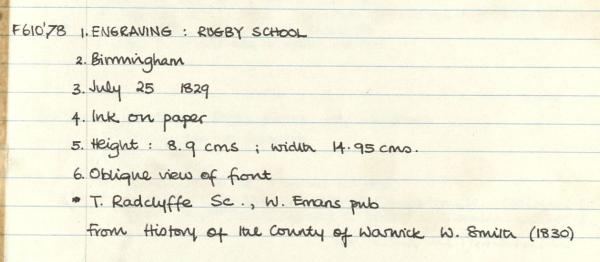 F610'78 1. ENGRAVING : RUGBY SCHOOL
2. Birmingham
3. July 25 1829
4. Ink on paper
5. Height : 8.9 cms ; width 14.95 cms.
6. Oblique view of front
* T. Radclyffe Sc., W. Emans pub
From History of the County of Warwick W. Smith (1830)